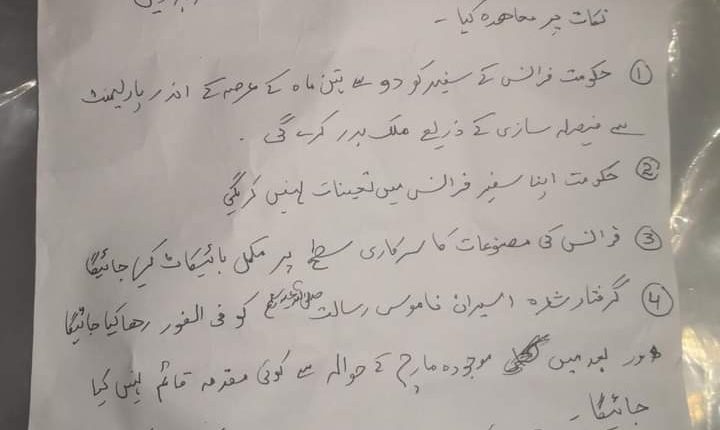 نکات پر معاہدہ کیا۔
① حکومت فرانس کے سفیر کو دو سے تین ماہ کے عرصہ کے اندر پارلیمنٹ
سے فیصلہ سازی کے ذریعے ملک بدر کرے گی۔
② حکومت اپنا سفیر فرانس میں تعینات نہیں کریگی
③ فرانس کی مصنوعات کا سرکاری سطح پر مکمل بائیکاٹ کیا جائیگا
④ گرفتار شدہ اسیران ناموس رسالت صلی اللہ علیہ وسلم کو فی الفور رھا کیا جائیگا
اور بعد میں موجودہ مارچ کے حوالہ سے کوئی مقدمہ قائم نہیں کیا
جائیگا۔